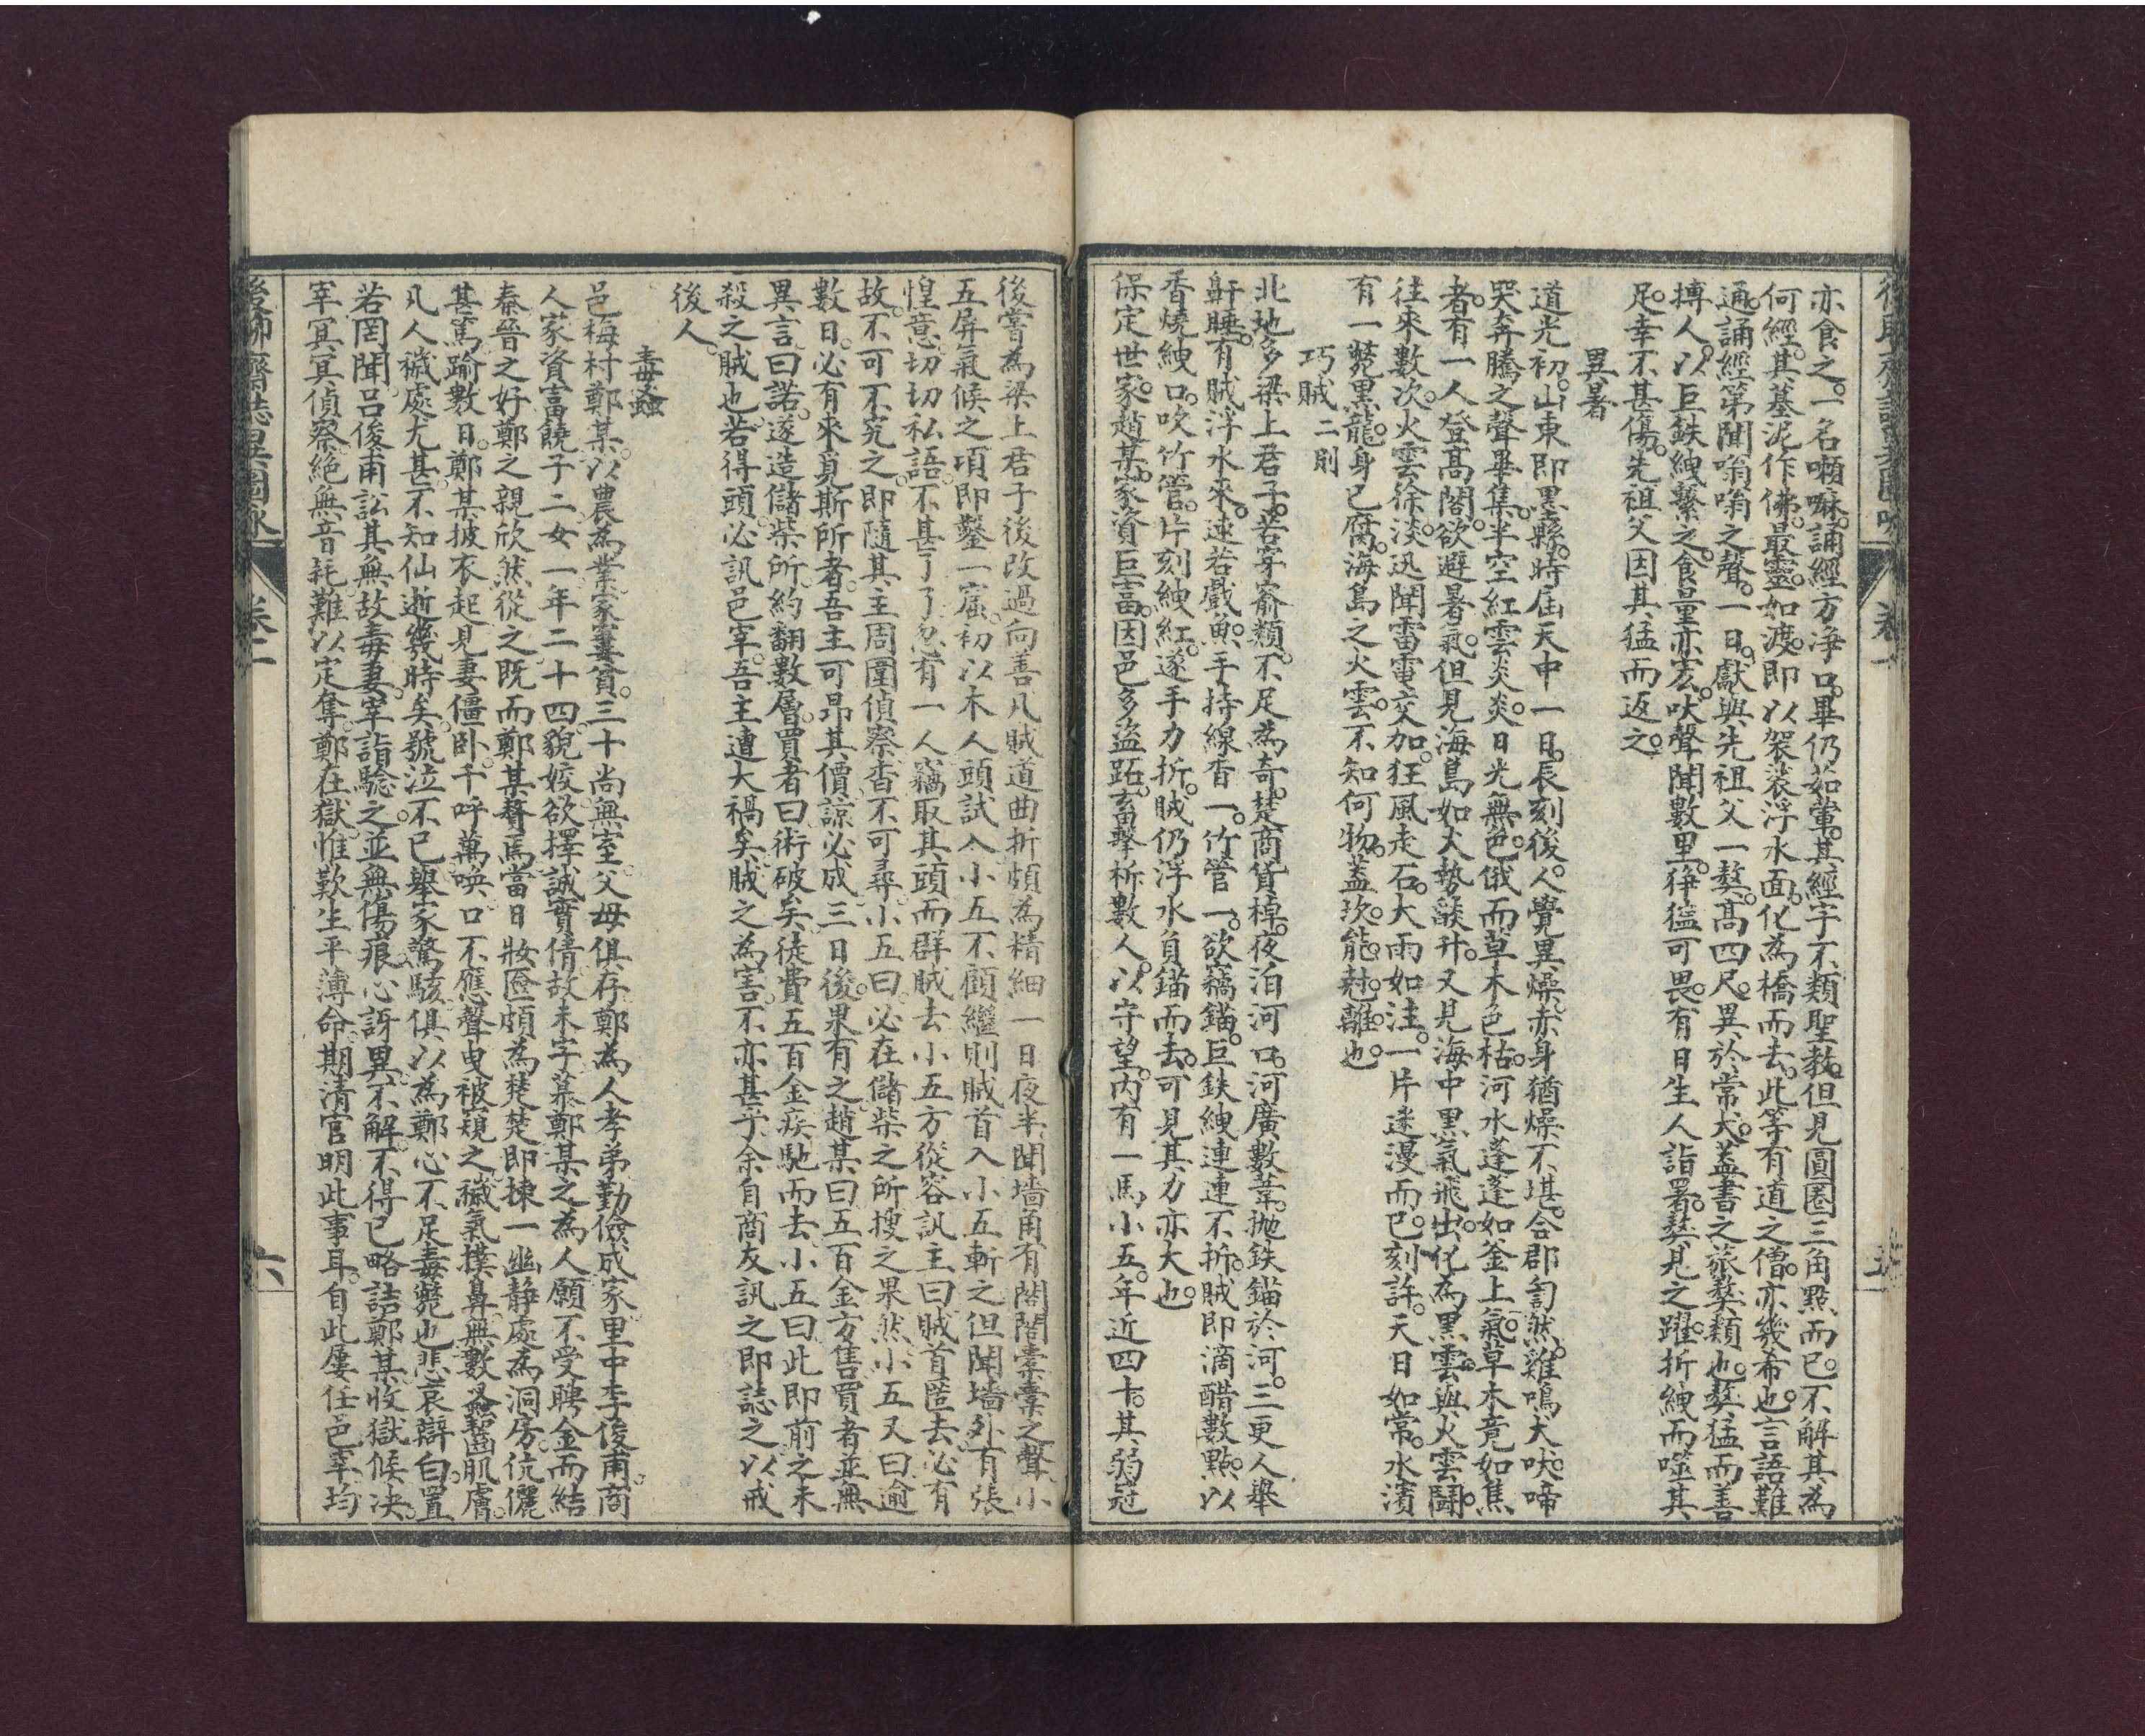 亦食之。一名喇嘛。誦經方淨口。畢仍茹葷。其經字不類聖教。但見圓圈三角點而已。不解其為
何經。其基泥作佛。最靈。如渡。即以袈裟浮水面。化為橋而去。此等有道之僧。亦幾希也。言語難
通。誦經第聞嗡嗡之聲。一日。獻與先祖父一獒。高四尺。異於常犬。蓋書之旅獒類也。獒猛而善
搏人。以巨鉄絏繫之。食量亦宏。吠聲聞數里。猙獰可畏。有日生人詣署。獒見之。躍折絏而噬其
足。幸不甚傷。先祖父因其猛而返之。
異暑
道光初。山東即墨縣。時屆天中一日。辰刻後。人覺異燥。赤身猶燥不堪。合郡訇然。雞鳴犬吠。啼
哭奔騰之聲畢集。半空紅雲炎炎。日光無色。俄而草木色枯。河水蓬蓬如釜上氣。草木竟如焦
者。有一人登高閣。欲避暑氣。但見海島如火勢燄升。又見海中黑氣飛出。化為黑雲。與火雲鬪。
往來數次。火雲徐淡。迅聞雷電交加。狂風走石。大雨如注。一片迷漫而已。刻許。天日如常。水濱
有一斃黑龍。身已腐。海島之火雲。不知何物。蓋坎能尅離也。
巧賊二則
北地多梁上君子。若穿窬類。不足為奇。楚商貨棹。夜泊河口。河廣數葦。拋鉄錨於河。三更人舉
鼾睡。有賊浮水來。速若戲魚。手持線香一。竹管一。欲竊錨。巨鉄絏連連不折。賊即滴醋數點。以
香燒絏。口吹竹管。片刻絏紅。遂手力折。賊仍浮水負錨而去。可見其力亦大也。
保定世家。趙某。家資巨富。因邑多盜跖。畜擊柝數人。以守望。內有一馬小五。年近四十。其弱冠
後嘗為梁上君子後改過向善凡賊道曲折頗為精細一日夜半聞墻角有閣閣橐橐之聲小
五屏氣候之頃即鑿一窟。初以木人頭試入小五不顧繼則賊首入小五斬之但聞墻外有張
惶意。切切私語。不甚了了忽有一人竊取其頭而群賊去小五方從容訊主曰賊首匿去必有
故。不可不究之。即隨其主周圍偵察。杳不可尋。小五曰。必在儲柴之所搜之果然小五又曰逾
數日。必有來覓斯所者。吾主可昂其價。諒必成三日後。果有之。趙某曰五百金方售買者並無
異言。曰諾。遂造儲柴所。約翻數層。買者曰術破矣。徒費五百金。疾馳而去小五曰此即前之未
殺之賊也。若得頭。必訊邑宰。吾主遭大禍矣。賊之為害。不亦甚乎余自商友訊之即誌之以戒
後人。
毒蟲
邑梅村鄭某。以農為業。家寠貧。三十尚無室。父母俱存。鄭為人孝弟勤儉成家里中李俊甫。商
人。家資富饒子二女一年二十四。貌姣欲擇誠實倩。故未字慕鄭某之為人願不受聘金而結
秦晉之好鄭之親欣然從之既而鄭某贅焉當日妝匳頗為楚楚即揀一幽靜處為洞房。伉儷
甚篤踰數日。鄭某披衣起見妻僵卧千呼萬喚口不應聲曳被窺之穢氣撲鼻無數蟲齧肌膚。
凡人穢處尤甚不知仙逝幾時矣。號泣不已舉家驚駭俱以為鄭心不足毒斃也悲哀辯白。置
若罔聞。呂俊甫訟其無故毒妻。宰詣驗之。並無傷痕心訝異不解。不得已略詰鄭某收獄候決。
宰冥冥偵察。絕無音耗。難以定奪。鄭在獄惟歎生平薄命。期清官明此事耳自此屢任邑宰均
後聊齋誌異圖詠
卷一
六